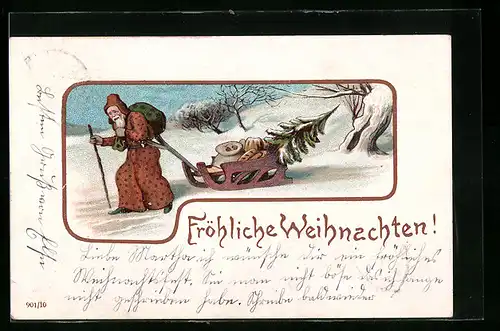 Fröhliche Weihnachten!
Liebe Martha ich wünsche dir ein fröhliches
Weihnachtsfest. Sei man nicht böse das ich lange
nicht geschrieben habe. Schreibe bald wieder
901/10